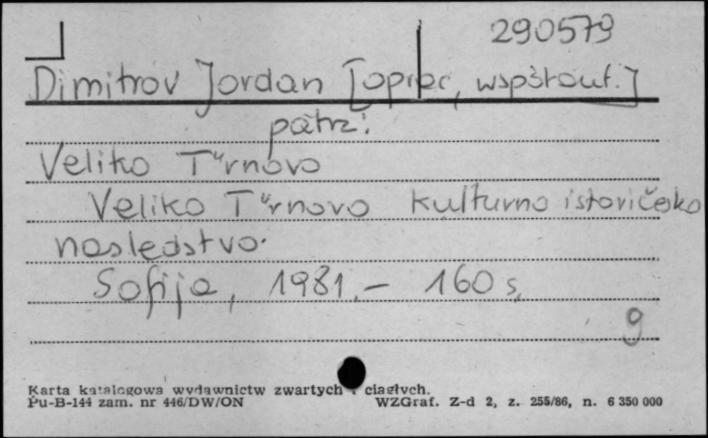 290579
Dimitrov Jordan [oprac, wspótaut.]
patrz:
Veliko T"rnovo
Veliko T"rnovo kulturno istoričesko
nasledstvo.
Sofija, 1981.- 160 s,
9
Karta katalogowa wydawnictw zwartych i ciągłych.
Pu-B-144 zam. nr 446/DW/ON WZGraf. Z-d 2, z. 255/86, n. 6 350 000